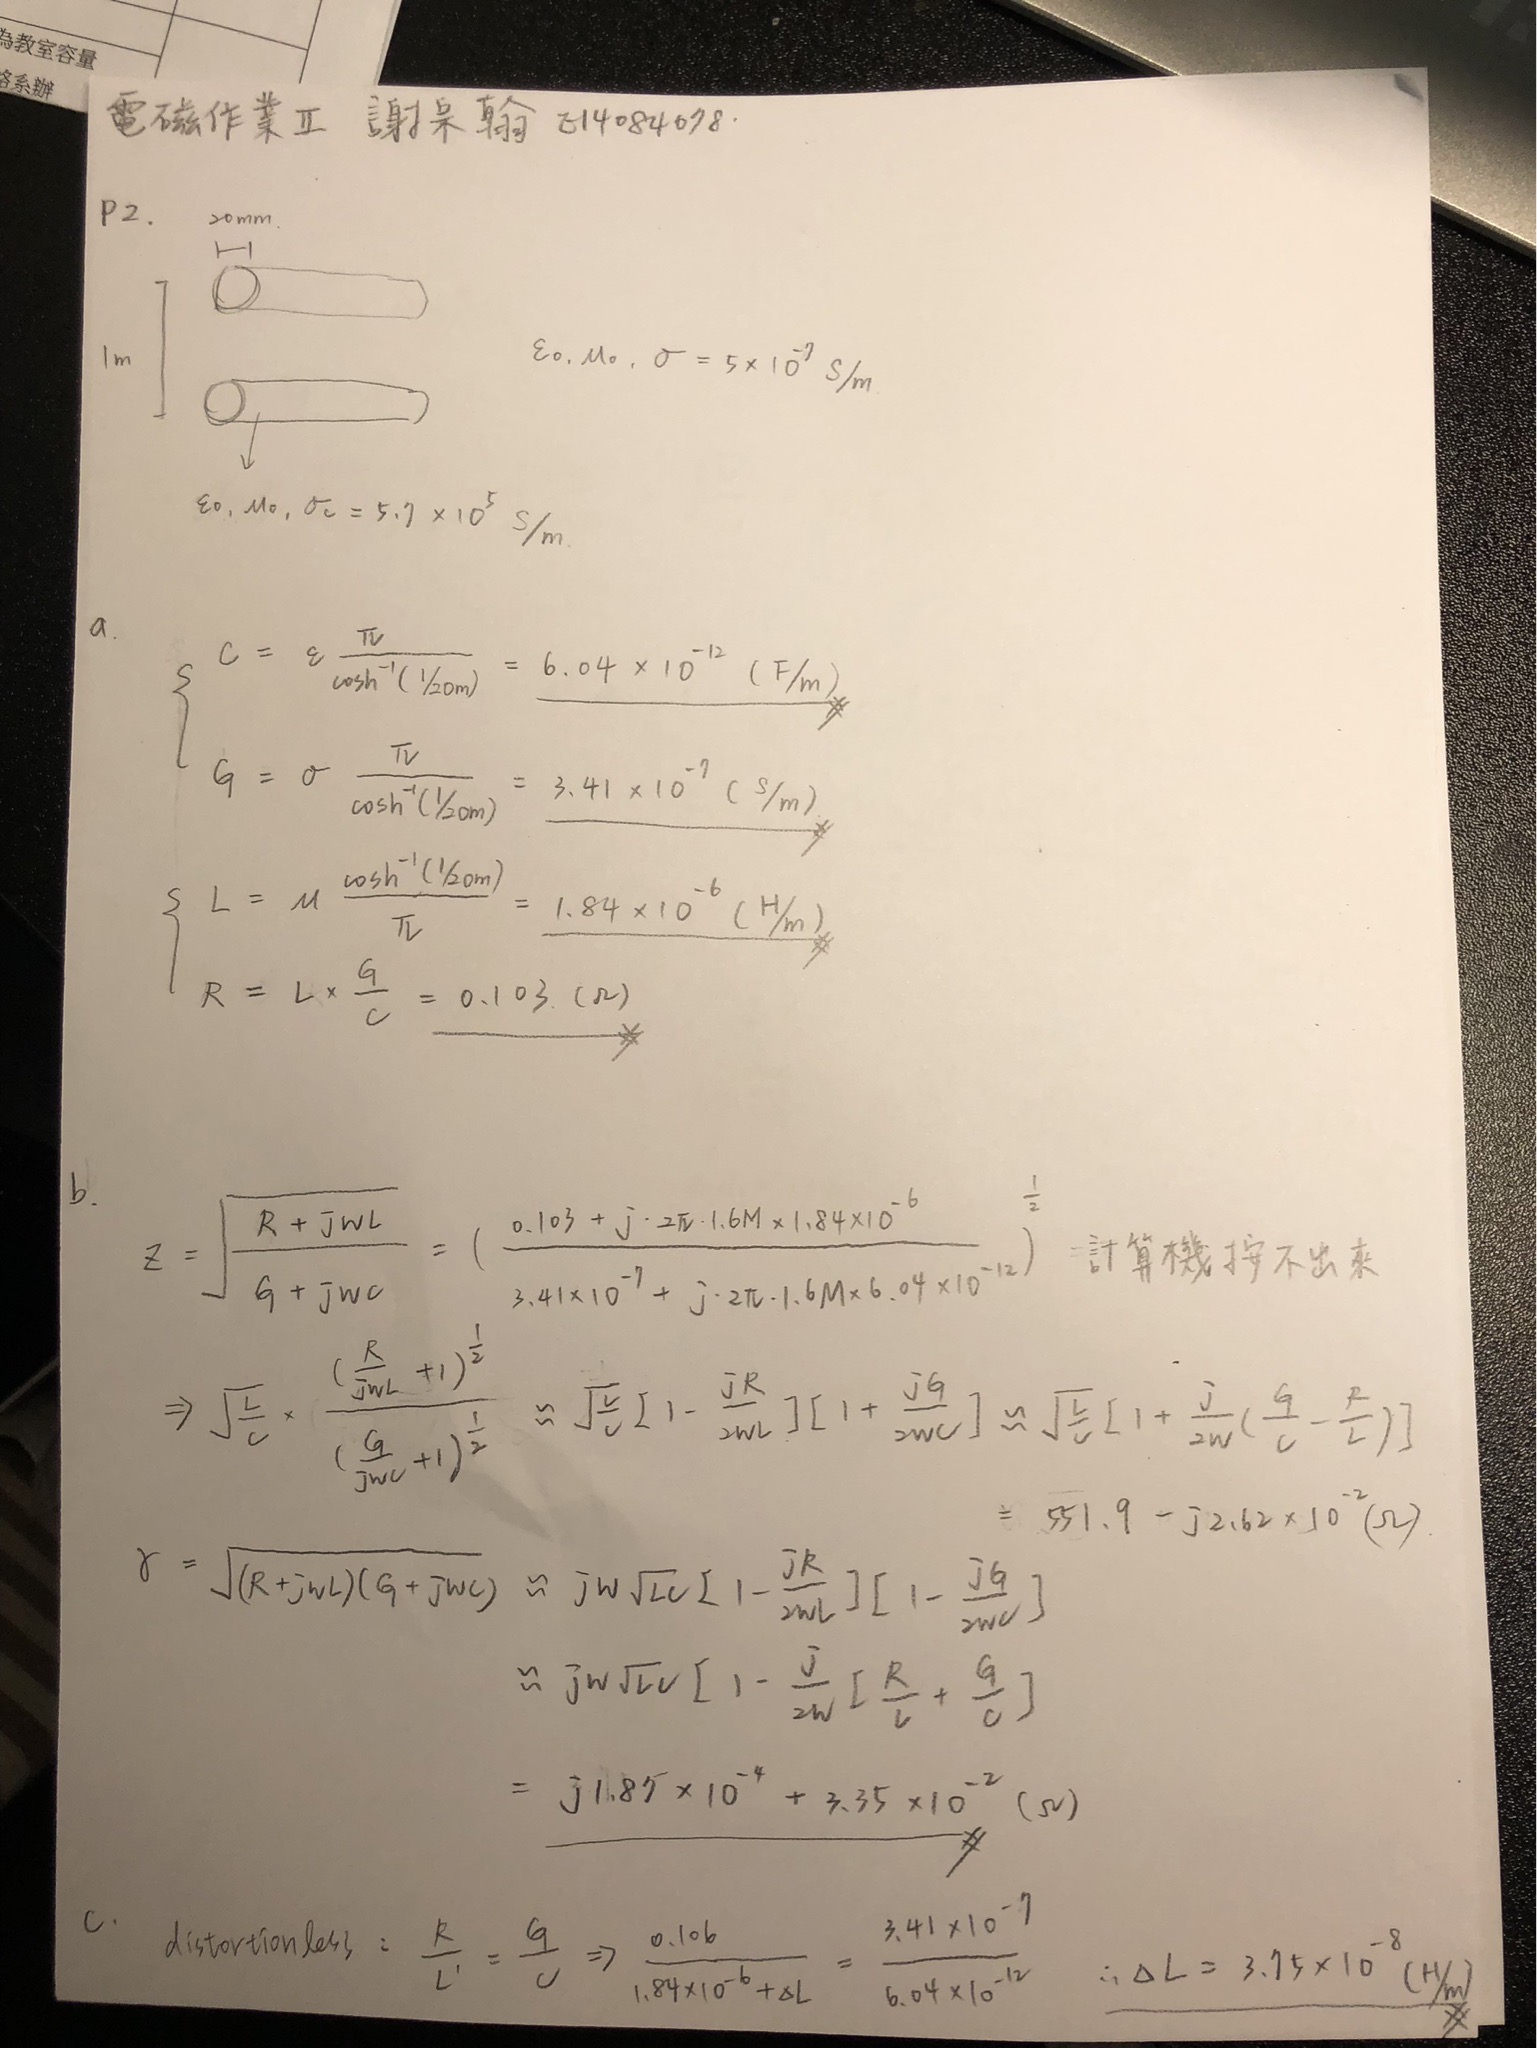 為教室容量
系辦
電磁作業II 謝昊翰 E14084078.
P2. 20mm.
1m
ε₀, μ₀, σ = 5×10⁻⁷ S/m
ε₀, μ₀, σc = 5.7 × 10⁵ S/m
a.
C = ε π/cosh⁻¹(1/20m) = 6.04 × 10⁻¹² (F/m)
G = σ π/cosh⁻¹(1/20m) = 3.41 × 10⁻⁷ (S/m)
L = μ cosh⁻¹(1/20m)/π = 1.84 × 10⁻⁶ (H/m)
R = L × G/C = 0.103 (Ω)
b.
Z = √((R + jwL)/(G + jwC)) = ((0.103 + j·2π·1.6M × 1.84×10⁻⁶)/(3.41×10⁻⁷ + j·2π·1.6M×6.04×10⁻¹²))^(1/2) = 計算機按不出來
⇒ √(L/C) × (R/jwL + 1)^(1/2)/(G/jwC + 1)^(1/2) ≈ √(L/C) [1 - jR/2wL][1 + jG/2wC] ≈ √(L/C) [1 + j/2w (G/C - R/L)]
= 551.9 - j2.62×10⁻² (Ω).
γ = √((R+jwL)(G+jwC)) ≈ jw√LC [1 - jR/2wL][1 - jG/2wC]
≈ jw√LC [1 - j/2w [R/L + G/C]
= j1.87 × 10⁻⁴ + 3.35 × 10⁻² (Ω)
c. distortionless : R/L' = G/C ⇒ 0.106/(1.84×10⁻⁶ + ΔL) = 3.41×10⁻⁷/6.04×10⁻¹² ∴ ΔL = 3.75×10⁻⁸ (H/m)